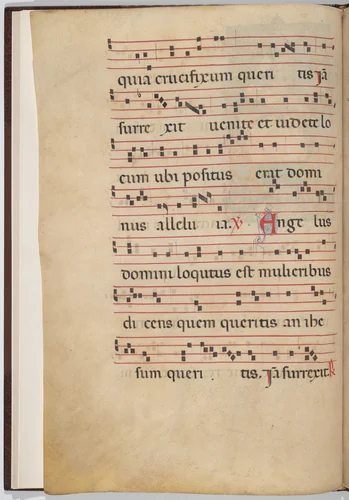 quia crucifixum queri tis Jā
surre xit uenite et uidete lo
cum ubi positus erat domi
nus allelu ia. V. Ange lus
domini loqutus est mulieribus
di cens quem queritis an ihe
sum queri tis. Jā surrexit.